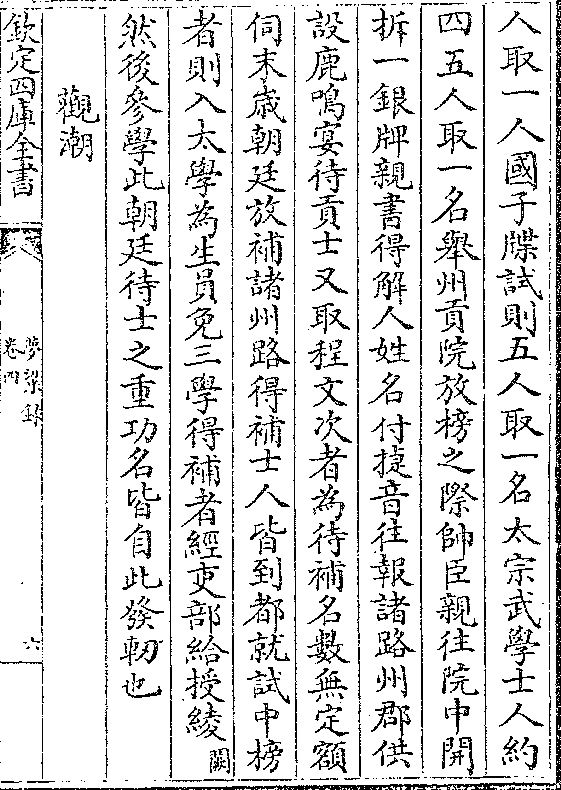 人取一人國子牒試則五人取一名太宗武學士人約
四五人取一名舉州貢院放榜之際帥臣親往院中開
拆一銀牌親書得解人姓名付㨗音往報諸路州郡供
設鹿鳴宴待貢士又取程文次者為待補名數無定額
伺末歳朝廷放補諸州路得補士人皆到都就試中榜
者則入太學為生員免三學得補者經吏部給授綾闕
然後參學此朝廷待士之重功名皆自此發軔也
觀潮
欽定四庫全書
夢粱録
卷四
六